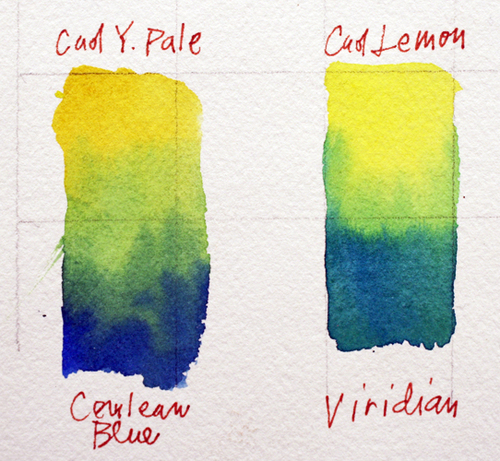 Cad Y. Pale
Cad Lemon
Cerulean
Blue
Viridian